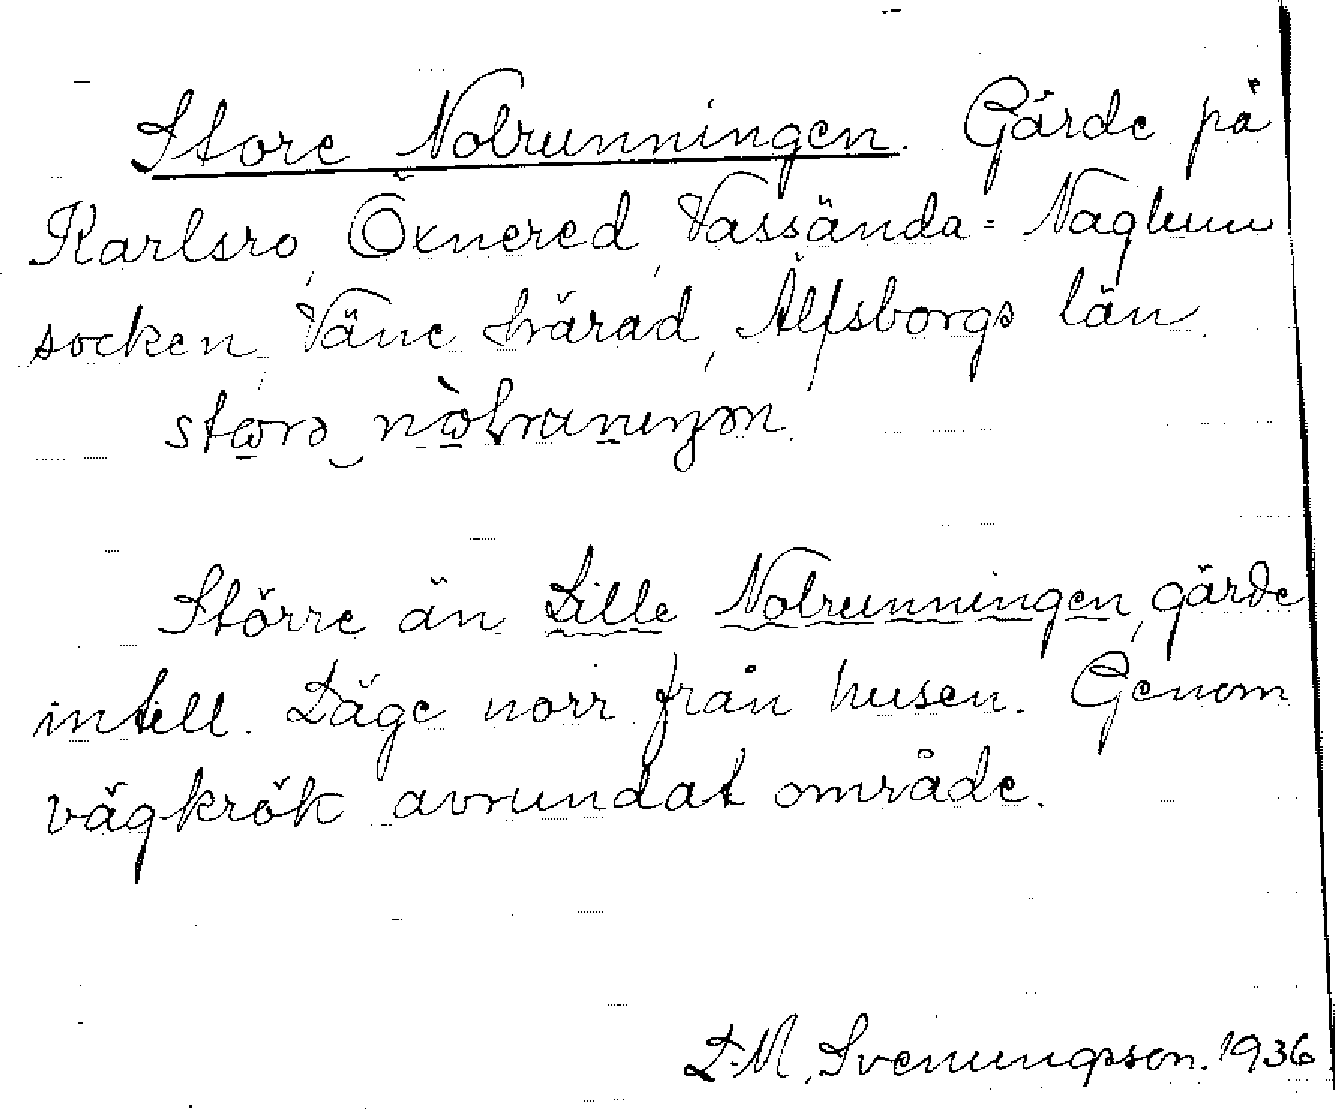 Store Nolrunningen. Gärde på
Karlsro, Öxnered, Vassända-Naglum
socken, Väne härad, Älfsborgs län.
Större än Lille Nolrunningen, gärde
intill. Läge norr från husen. Genom
vägkrök avrundat område.
L.M. Svenungsson. 1936